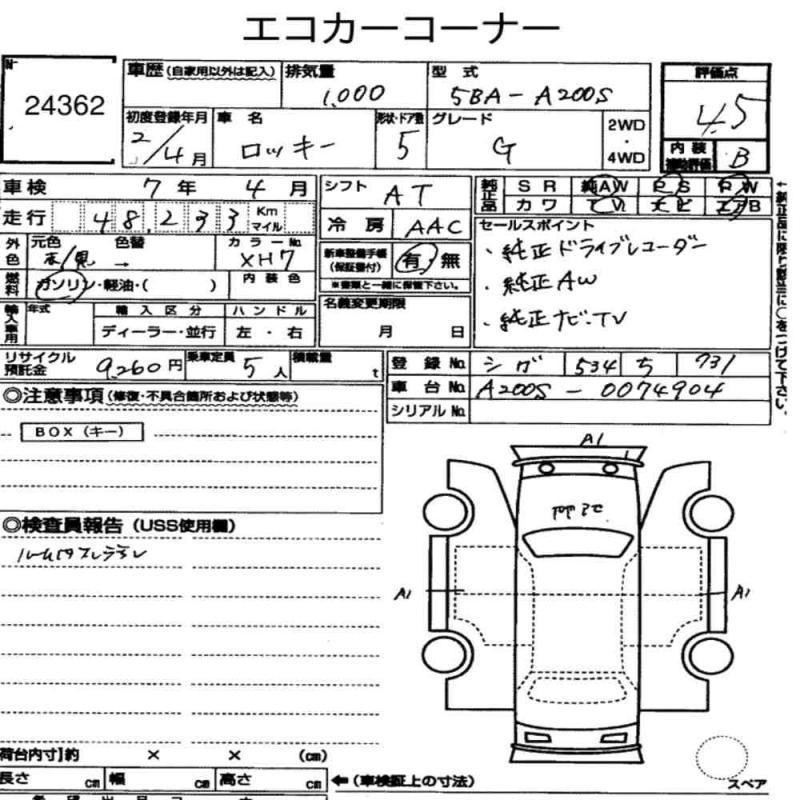 エコカーコーナー
24362
車歴 (自家用以外は記入)
排気量
1,000
型式
5BA-A200S
評価点
4.5
初度登録年月
2/4月
車名
ロッキー
形状・ドア数
5
グレード
G
2WD
・
4WD
内装
補助評価
B
車検 7年 4月
シフト AT
純正品
SR 純AW PS PW
カワ TV ナビ エアB
走行 48,233 Km マイル
冷房 AAC
セールスポイント
・純正ドライブレコーダー
・純正AW
・純正ナビ.TV
外色 元色 色替 カラーNo.
赤/黒 → XH7
新車整備手帳 (保証書付) 有・無
※書類と一緒に保管下さい。
燃料 ガソリン・軽油・( )
内装色
名義変更期限
月 日
輸入車用 年式 輸入区分 ハンドル
ディーラー・並行 左・右
リサイクル預託金 9,260円
乗車定員 5人
積載量 t
登録No. シガ 534 ち 731
車台No. A200S-0074904
シリアルNo.
◎注意事項 (修復・不具合箇所および状態等)
BOX (キー)
◎検査員報告 (USS使用欄)
A1
A1
A1
スペア
荷台内寸】約 × × (cm)
長さ cm 幅 cm 高さ cm ← (車検証上の寸法)